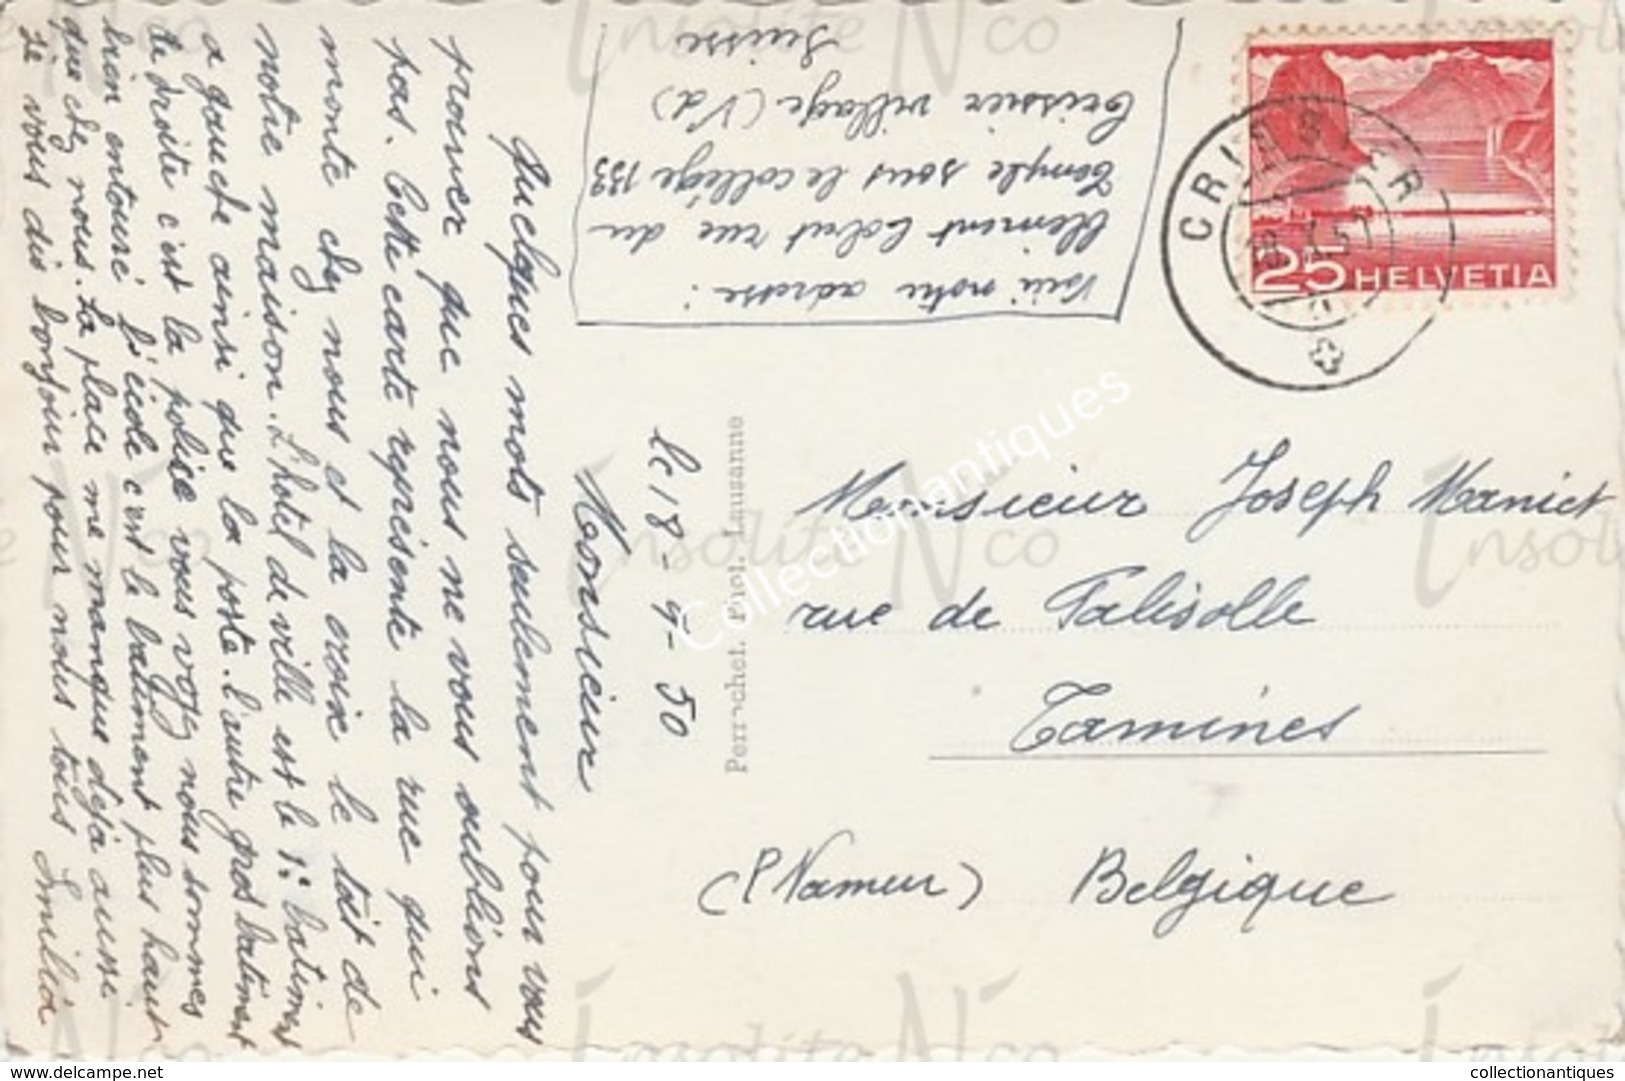 le 18-9-50
Monsieur
Quelques mots seulement pour vous
prouver que nous ne vous oublions
pas. Cette carte représente la rue qui
monte chez nous et la croix le toit de
notre maison. L'hotel de ville est le 1: batiment
a gauche ainsi que la poste. l'autre gros batiment
de droite c'est la police vous voyez nous sommes
bien entouré l'école c'est le batiment plus haut
que chez nous. La place me manque déjà aussi
je vous dis bonjour pour nous tous Emilia
Voici notre adresse:
Clément rue du
Temple sous le collège 133
Crissier village (Vd)
Suisse
Perrochet. Phot. Lausanne
CRISSIER
25 HELVETIA
Monsieur Joseph Manict
rue de Falisolle
Tamines
(P Namur) Belgique
Insolite N'co
Collectionantiques
www.delcampe.net
collectionantiques